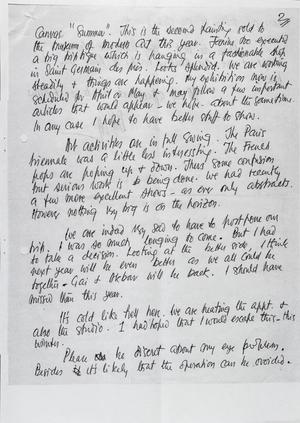 2
Canvas "Summer". This is the second painting sold to
the Museum of Modern Art this year. Farina has executed
a big triptique which is hanging in a fashionable shop
in Saint Germain des près. Looks splendid. We are working
steadily & things are happening. My exhibition now is
scheduled for April or May & may follow a few important
articles that would appear – we hope. about the same time.
In any case I hope to have better stuff to show.
Art activities are in full swing. The Paris
biennale was a little less interesting. The French
pops are popping up & down. Thus some confusion
but serious work is being done. We had recently
a few more excellent shows – as ever only abstracts.
However nothing very big is on the horizon.
We are indeed very sad to have to postpone our
trip. I was so much longing to come. But I had
to take a decision. Looking at the better side, I think
next year will be even better as we all could be
together – Gai & will be back. I should have
missed them this year.
It's cold like hell here. We are heating the appt. &
also the studio. I had hoped that I would escape this – this
winter.
Please be discret about my eye problems.
Besides it's likely that the operation can be avoided.